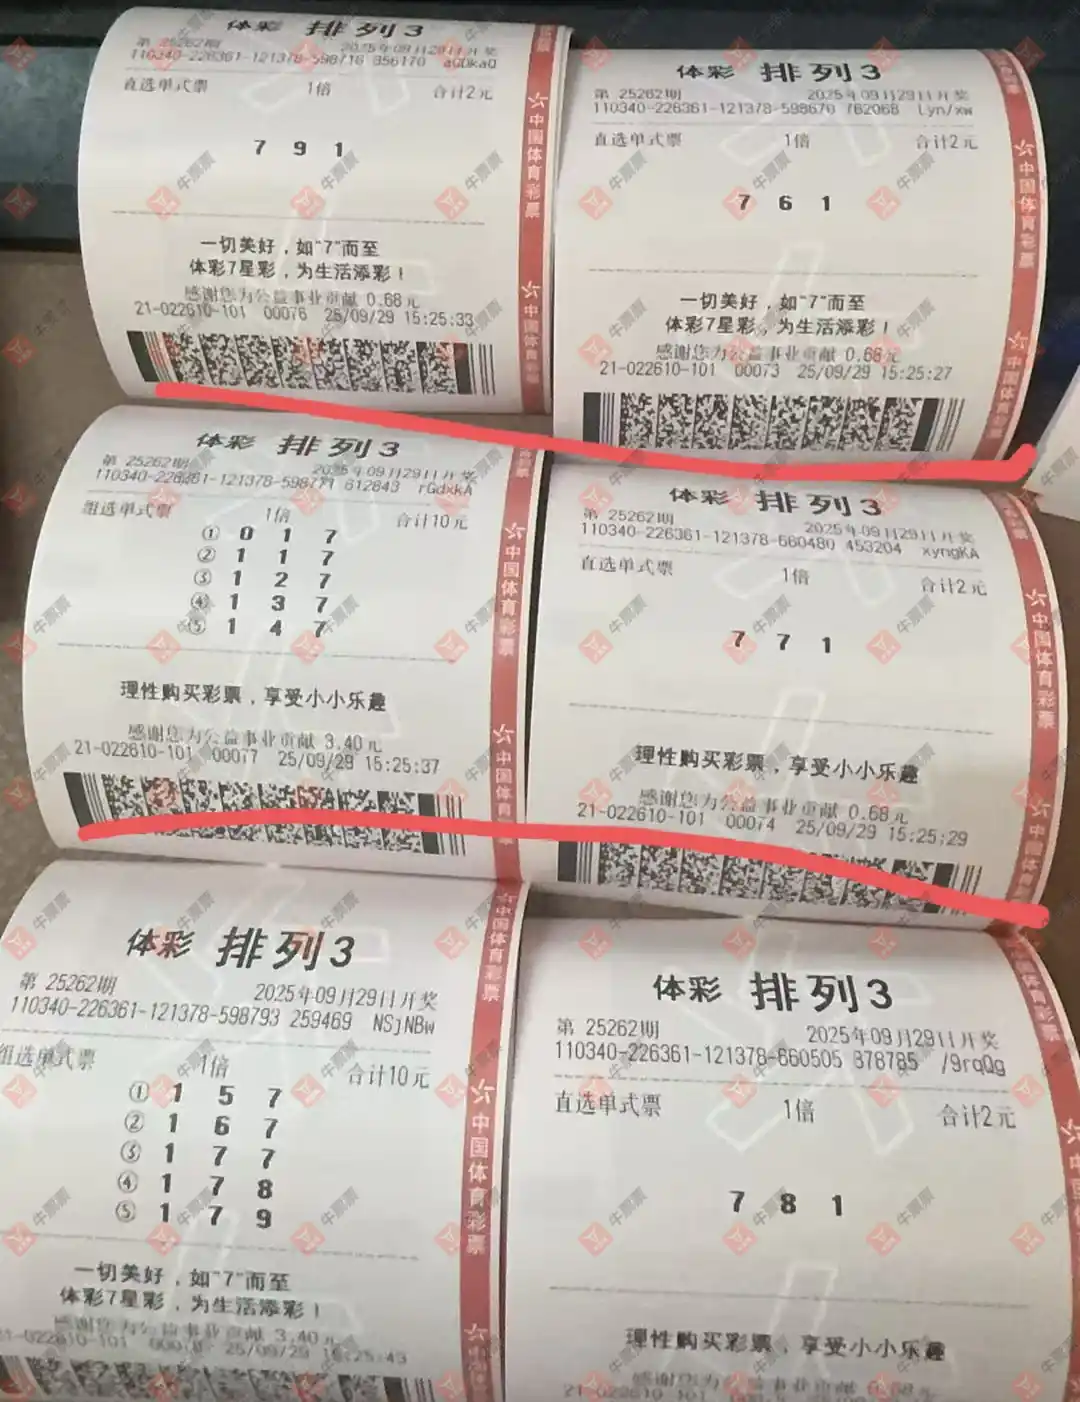 体彩 排列3
第 25262期
2025年09月29日开奖
110340-226361-121378-598716 856170 aGDkaQ
直选单式票 1倍 合计2元
7 9 1
一切美好，如“7”而至
体彩7星彩，为生活添彩！
感谢您为公益事业贡献 0.68元
21-022610-101 00076 25/09/29 15:25:33
中国体育彩票
中国体育彩票
体彩 排列3
第 25262期 2025年09月29日开奖
110340-226361-121378-598670 762068 Lyn/xw
直选单式票 1倍 合计2元
7 6 1
一切美好，如“7”而至
体彩7星彩，为生活添彩！
感谢您为公益事业贡献 0.68元
21-022610-101 00073 25/09/29 15:25:27
中国体育彩票
中国体育彩票
体彩 排列3
第 25262期 2025年09月29日开奖
110340-226361-121378-598771 612843 rGdxkA
组选单式票 1倍 合计10元
① 0 1 7
② 1 1 7
③ 1 2 7
④ 1 3 7
⑤ 1 4 7
理性购买彩票，享受小小乐趣
感谢您为公益事业贡献 3.40元
21-022610-101 00077 25/09/29 15:25:37
中国体育彩票
中国体育
体彩 排列3
第 25262期 2025年09月29日开奖
110340-226361-121378-660480 453204 xyngKA
直选单式票 1倍 合计2元
7 7 1
理性购买彩票，享受小小乐趣
感谢您为公益事业贡献 0.68元
21-022610-101 00074 25/09/29 15:25:29
中国体育彩票
中国体育
体彩 排列3
第 25262期
2025年09月29日开奖
110340-226361-121378-598793 259469 NSjNBw
组选单式票 1倍 合计10元
① 1 5 7
② 1 6 7
③ 1 7 7
④ 1 7 8
⑤ 1 7 9
一切美好，如“7”而至
体彩7星彩，为生活添彩！
感谢您为公益事业贡献 3.40元
21-022610-101 00078 25/09/29 15:25:43
中国体育彩票
中国体育彩票
体彩 排列3
第 25262期 2025年09月29日开奖
110340-226361-121378-660505 378785 /9rqQg
直选单式票 1倍 合计2元
7 8 1
理性购买彩票，享受小小乐趣
感谢您为公益事业贡献 0.68元
牛票票